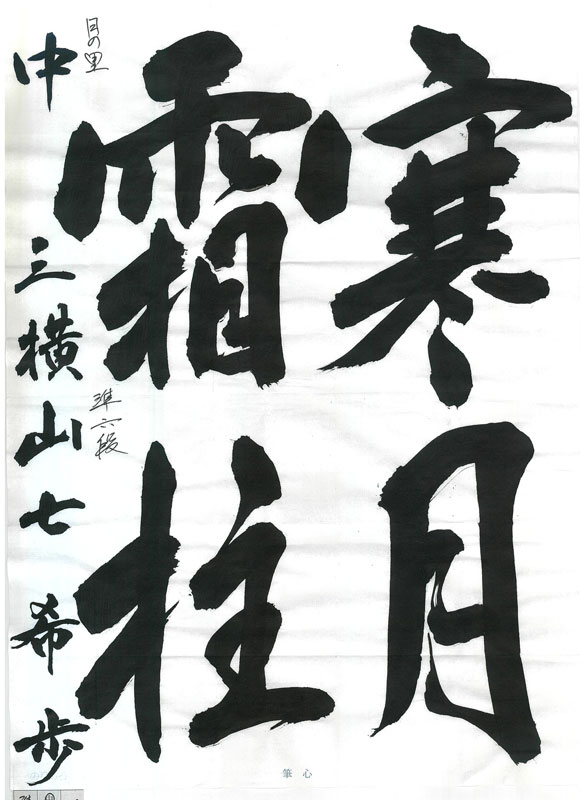 寒月
霜柱
日の里
準六段
中三横山七希歩
心筆